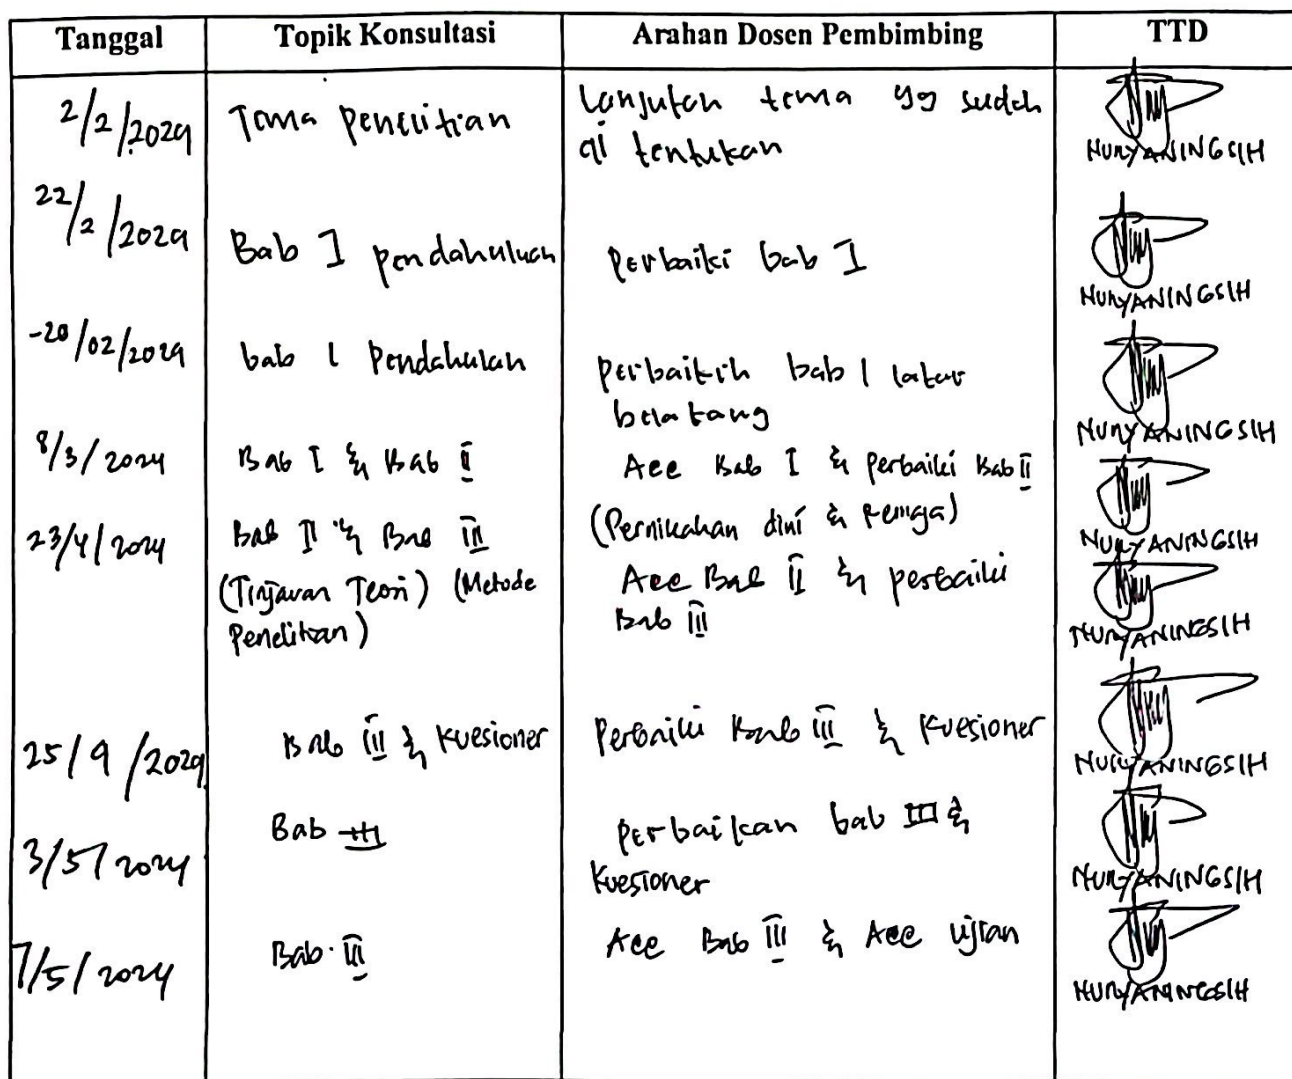 Tanggal Topik Konsultasi Arahan Dosen Pembimbing TTD
2/2/2024 Tema penelitian Lanjutkan tema yg sudah
di tentukan
NURYANINGSIH
22/2/2024 Bab I pendahuluan perbaiki bab I
NURYANINGSIH
28/02/2024 bab 1 Pendahulan perbaikin bab 1 latar
belakang
NURYANINGSIH
8/3/2024 Bab I & Bab II Acc Bab I & perbaiki Bab II
(Pernikahan dini & remaja)
NURYANINGSIH
23/4/2024 Bab II & Bab III Acc Bab II & perbaiki
(Tinjauan Teori) (Metode Bab III
Penelitian)
NURYANINGSIH
25/4/2024 Bab III & Kuesioner Perbaiki Bab III & Kuesioner
NURYANINGSIH
3/5/2024 Bab III perbaikan bab III &
Kuesioner
NURYANINGSIH
7/5/2024 Bab III Acc Bab III & Acc Ujian
NURYANINGSIH